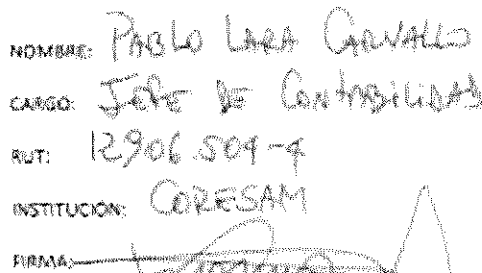 NOMBRE: PABLO LARA CARVALLO
CARGO: JEFE DE CONTABILIDAD
RUT: 12906.504-4
INSTITUCIÓN: CORESAM
FIRMA: